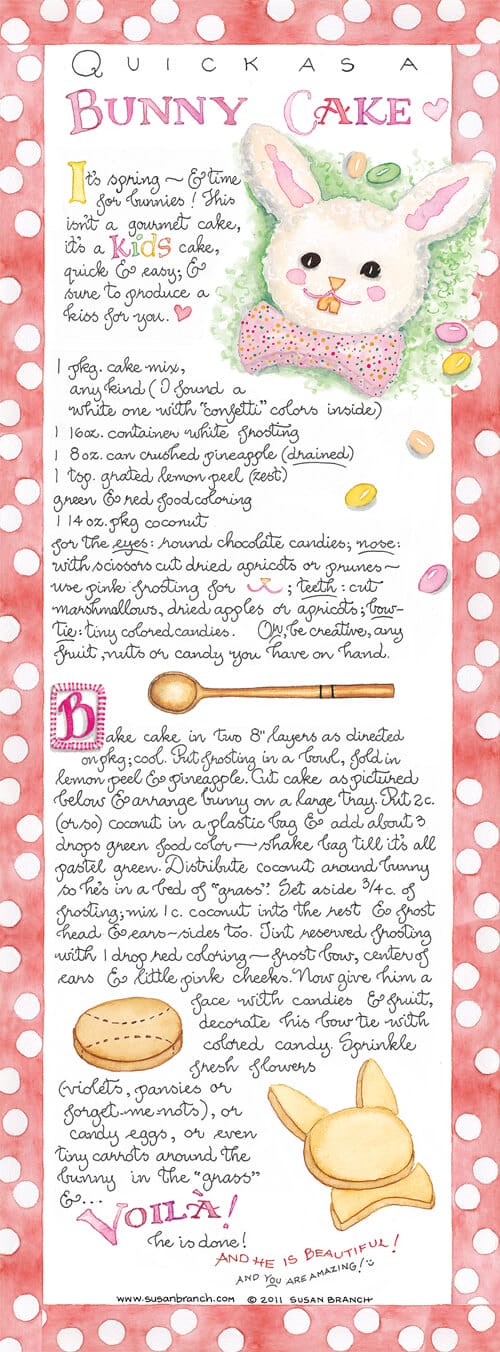 QUICK AS A
BUNNY CAKE
It's spring ~ & time
for bunnies! This
isn't a gourmet cake,
it's a KiDs cake,
quick & easy; &
sure to produce a
kiss for you.
1 pkg. cake mix,
any kind (I found a
white one with "confetti" colors inside)
1 16oz. container white frosting
1 8oz. can crushed pineapple (drained)
1 tsp. grated lemon peel (zest)
green & red food coloring
1 14 oz. pkg coconut
for the eyes: round chocolate candies; nose:
with scissors cut dried apricots or prunes~
use pink frosting for ; teeth: cut
marshmallows, dried apples or apricots; bow-
tie: tiny colored candies. Or, be creative, any
fruit, nuts or candy you have on hand.
Bake cake in two 8" layers as directed
on pkg; cool. Put frosting in a bowl, fold in
lemon peel & pineapple. Cut cake as pictured
below & arrange bunny on a large tray. Put 2 c.
(or so) coconut in a plastic bag & add about 3
drops green food color — shake bag till it's all
pastel green. Distribute coconut around bunny
so he's in a bed of "grass". Set aside 3/4 c. of
frosting; mix 1 c. coconut into the rest & frost
head & ears~sides too. Tint reserved frosting
with 1 drop red coloring — frost bow, center of
ears & little pink cheeks. Now give him a
face with candies & fruit,
decorate his bow tie with
colored candy. Sprinkle
fresh flowers
(violets, pansies or
forget-me-nots), or
candy eggs, or even
tiny carrots around the
bunny in the "grass"
&...
VOILÀ!
he is done!
AND HE IS BEAUTIFUL!
AND YOU ARE AMAZING!
www.susanbranch.com © 2011 SUSAN BRANCH